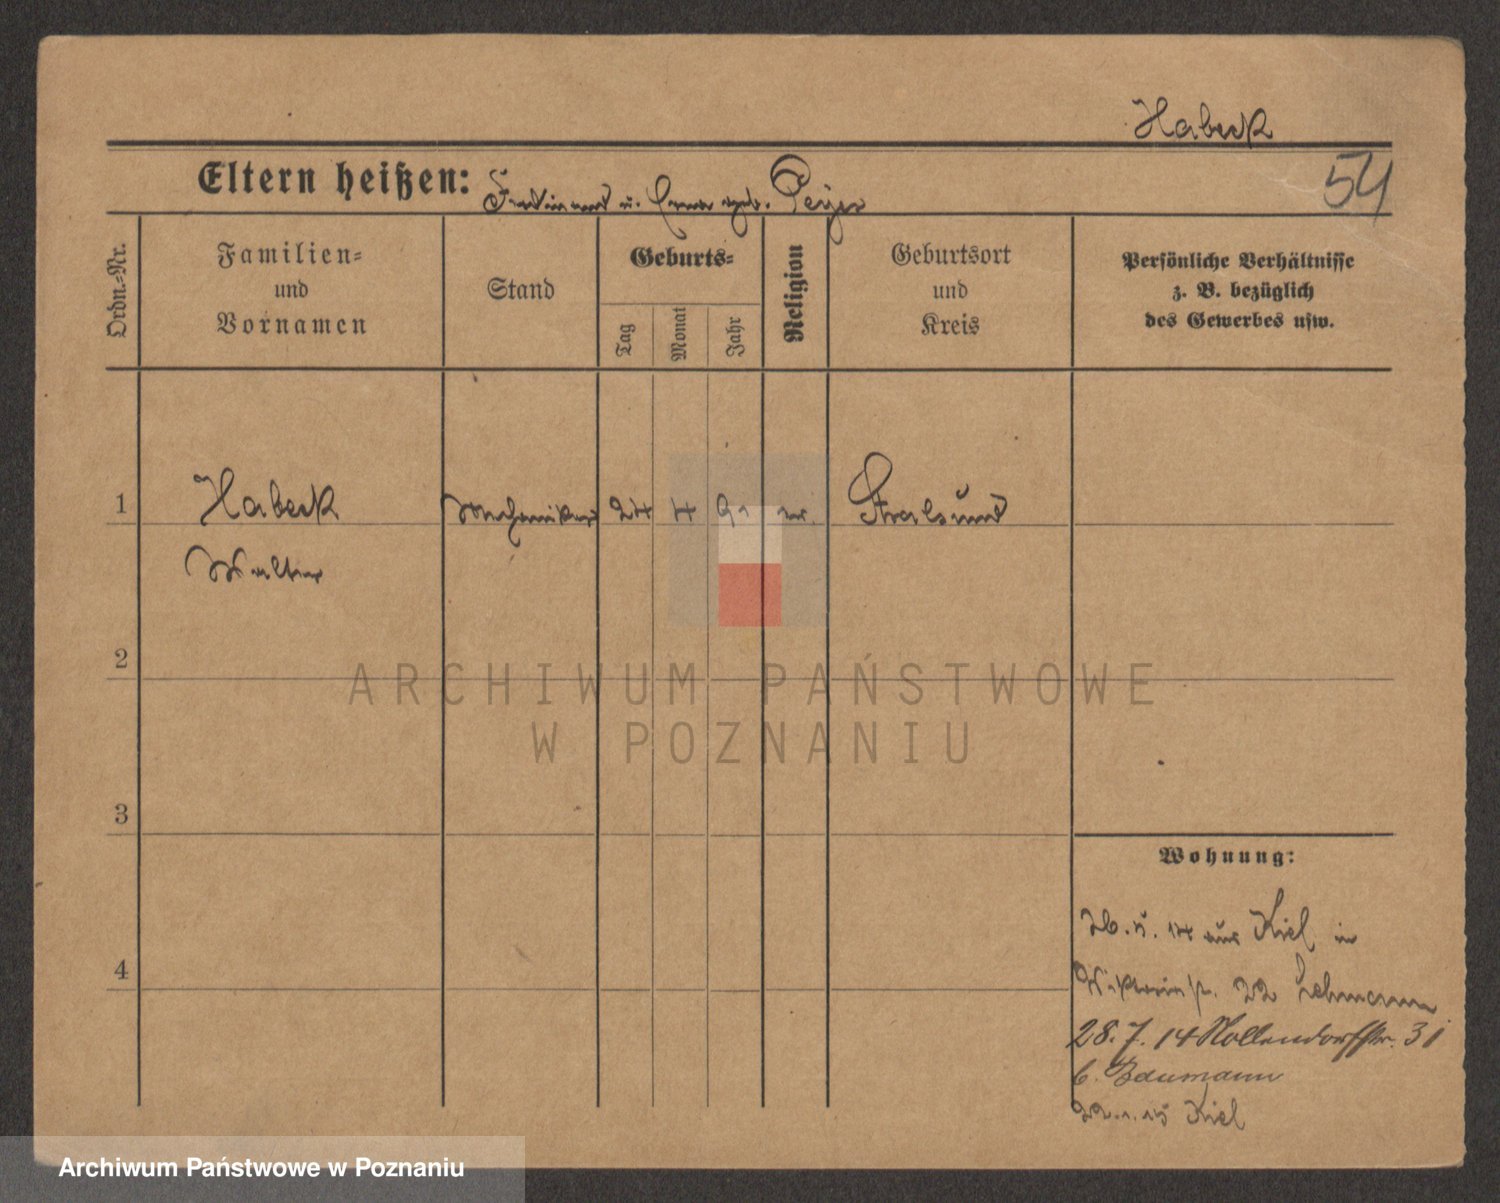 Habeck
54
Eltern heißen: Ferdinand u. Emma geb. Peijer
Ordn.=Nr.
Familien=
und
Vornamen
Stand
Geburts=
Tag
Monat
Jahr
Religion
Geburtsort
und
Kreis
Persönliche Verhältnisse
z. B. bezüglich
des Gewerbes usw.
1 Habeck Mechaniker 24 4 91 ev. Stralsund
Walter
2
ARCHIWUM PAŃSTWOWE
W POZNANIU
3
Wohnung:
26. 5. 14 aus Kiel in
4
Viktoriastr. 22 Lehmann
28. 7. 14 Nollendorfstr. 31
b. Baumann
22. 1. 15 Kiel
Archiwum Państwowe w Poznaniu